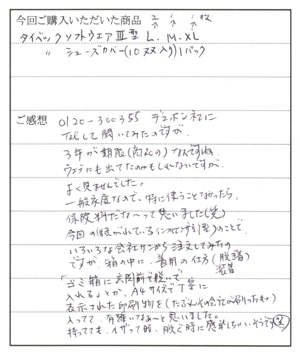 今回ご購入いただいた商品 2 1 1 枚
タイベックソフトウエアⅢ型 L. M. XL
〃 シューズカバー(10双入り)1パック
ご感想 0120-300355 デュポン社に
TELして聞いてみたのですが
3年が期限(商品の)なんですね。
ウェブにも出てたのかもしれないですが、
よく見ませんでした。
一般家庭なので、特に使うことなかったら、
保険料だな〜って思いました(笑)
今回の
いろいろな会社サンから注文してみたの
ですが、箱の中に、着用の仕方(脱着)
装着
「ゴミ箱に玄関前で脱いで
入れる」とか、A4サイズで丁寧に
表示された印刷物を(たぶんその会社が刷ったもの)
入ってて、有難いなぁーと思いました。
持ってても、イザって時、脱ぐ時に感染しちゃいそうです